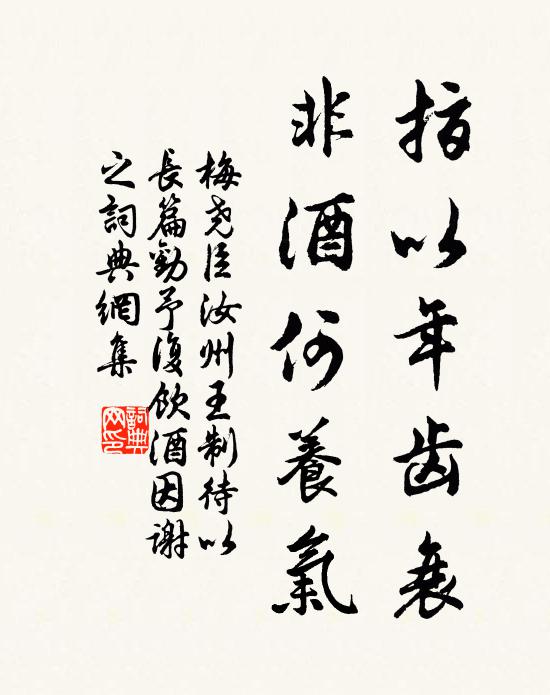 指以年齿衰
非酒何養氣
梅尧臣汝州王制待以
長篇勸予復飲酒因谢
之詞典網集
詞典
网印